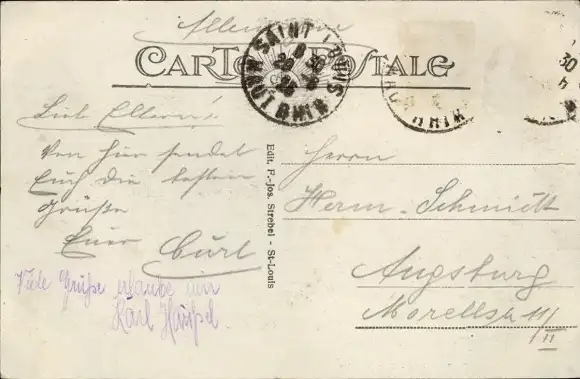 Allemagne
CARTE POSTALE
SAINT LOUIS
HAUT RHIN
Lieb Eltern!
Von hier sendet
Euch die besten
Grüße
Euer Curt
Viele Grüße erlaubt sich
Karl
Edit. F.-Jos. Strebel - St-Louis
Herrn
Herm. Schmidt
Augsburg
Morellstr 11/II